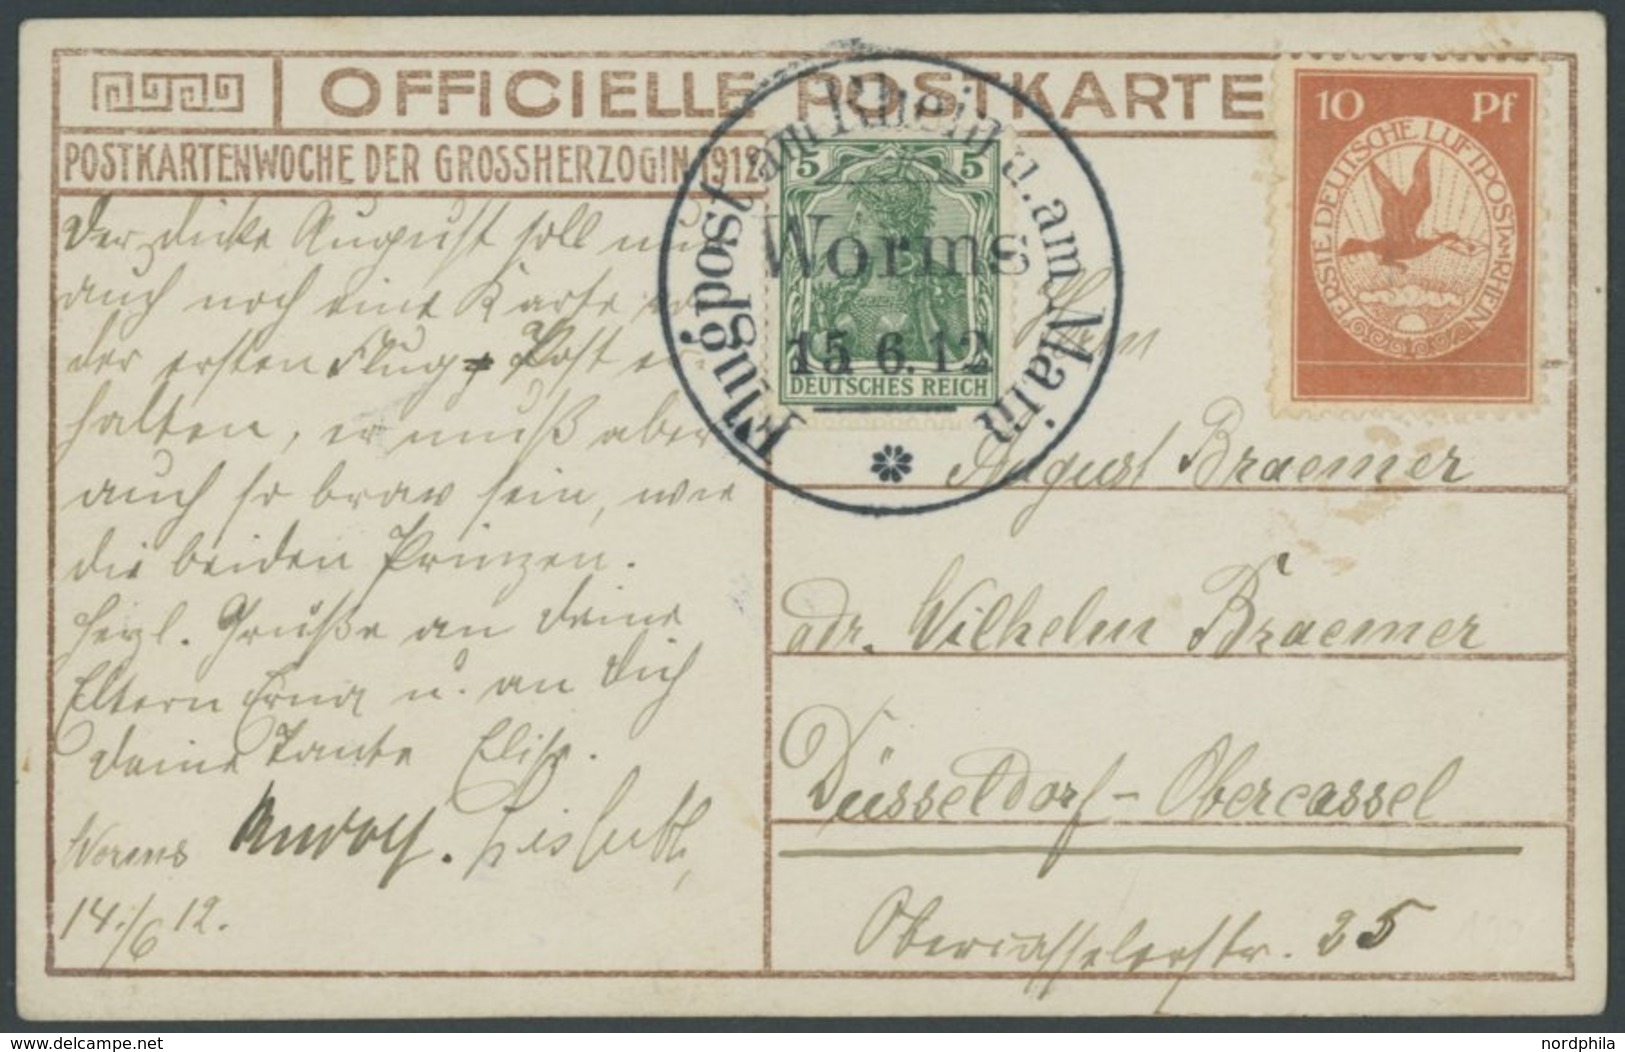 OFFICIELLE POSTKARTE
POSTKARTENWOCHE DER GROSSHERZOGIN 1912
10 Pf
ERSTE DEUTSCHE LUFTPOST AM RHEIN
5 5
DEUTSCHES REICH
Flugpost am Rhein u. am Main
Worms
15 6. 12
Der dicke August soll nun
auch noch eine Karte
der ersten Flug-Post er
halten, er muß aber
auch so brav sein, wie
die beiden Prinzen.
Herzl. Grüße an Deine
Eltern Erna u. an Dich
Deine Tante Elise.
Lisbeth,
Worms
14./6 12.
August Braemer
adr. Wilhelm Braemer
Düsseldorf-Obercassel
Obercasselerstr. 25
delcampe.net
nordphila